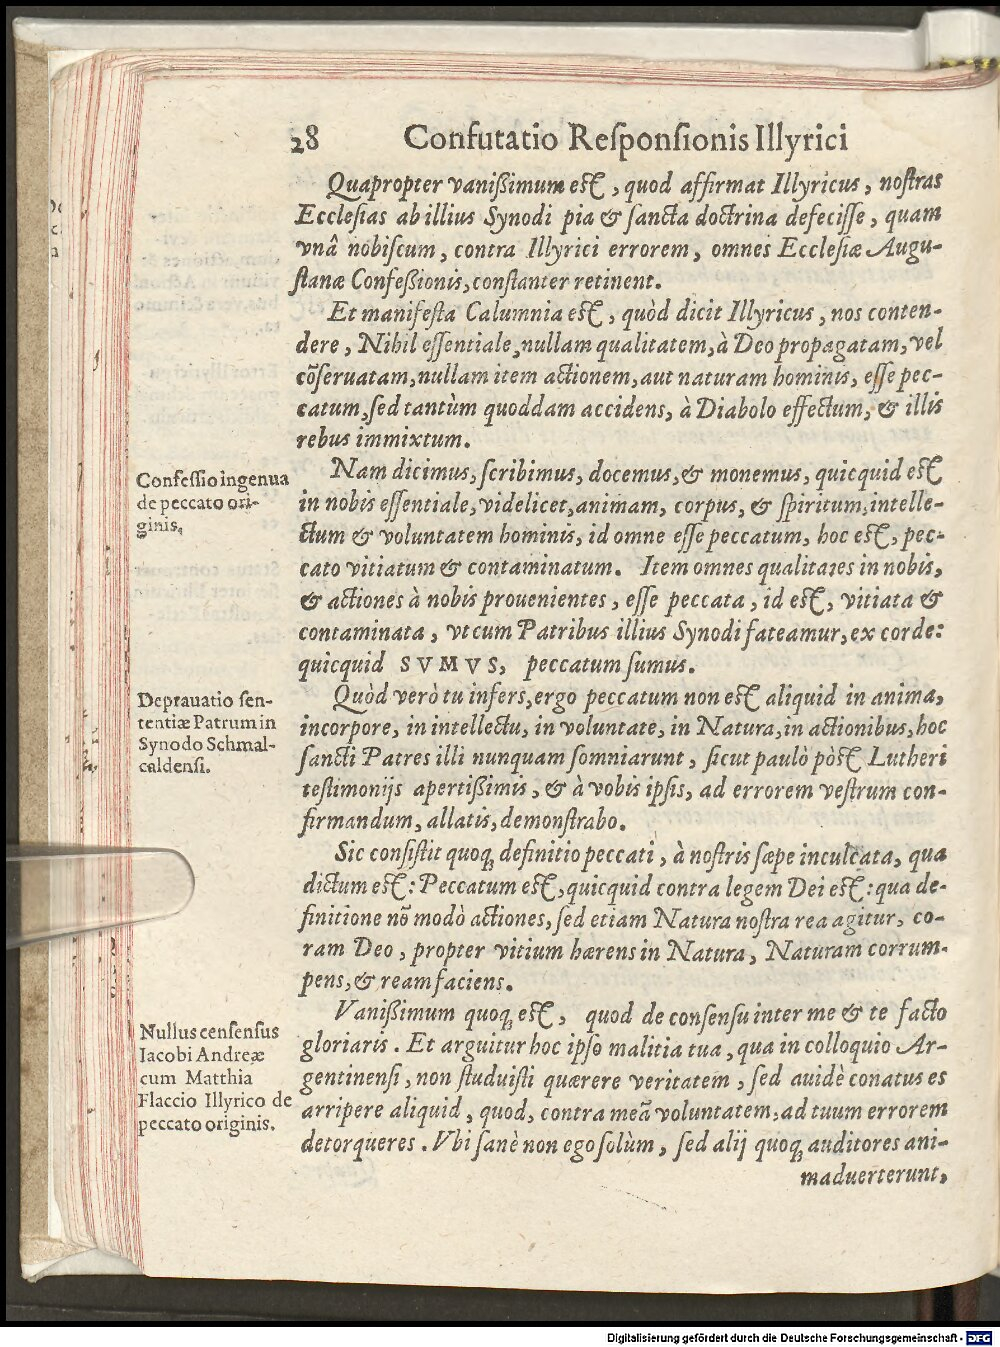 28 Confutatio Reſponſionis Illyrici
Quapropter vanißimum eſt, quod affirmat Illyricus, noſtras
Eccleſias ab illius Synodi pia & ſancta doctrina defeciſſe, quam
vnâ nobiſcum, contra Illyrici errorem, omnes Eccleſiæ Augu-
ſtanæ Confeßionis, conſtanter retinent.
Et manifeſta Calumnia eſt, quòd dicit Illyricus, nos conten-
dere, Nihil eſſentiale, nullam qualitatem, à Deo propagatam, vel
cõſeruatam, nullam item actionem, aut naturam hominis, eſſe pec-
catum, ſed tantùm quoddam accidens, à Diabolo effectum, & illis
rebus immixtum.
Confeſſio ingenua
de peccato ori-
ginis.
Nam dicimus, ſcribimus, docemus, & monemus, quicquid eſt
in nobis eſſentiale, videlicet, animam, corpus, & ſpiritum, intelle-
ctum & voluntatem hominis, id omne eſſe peccatum, hoc eſt, pec-
cato vitiatum & contaminatum. Item omnes qualitates in nobis,
& actiones à nobis prouenientes, eſſe peccata, id eſt, vitiata &
contaminata, vt cum Patribus illius Synodi fateamur, ex corde:
quicquid SVMVS, peccatum ſumus.
Deprauatio ſen-
tentiæ Patrum in
Synodo Schmal-
caldenſi.
Quòd verò tu infers, ergo peccatum non eſt aliquid in anima,
in corpore, in intellectu, in voluntate, in Natura, in actionibus, hoc
ſancti Patres illi nunquam ſomniarunt, ſicut paulò pòſt Lutheri
teſtimonijs apertißimis, & à vobis ipſis, ad errorem veſtrum con-
firmandum, allatis, demonſtrabo.
Sic conſiſtit quoq; definitio peccati, à noſtris ſæpe inculcata, qua
dictum eſt: Peccatum eſt, quicquid contra legem Dei eſt: qua de-
finitione nõ modò actiones, ſed etiam Natura noſtra rea agitur, co-
ram Deo, propter vitium hærens in Natura, Naturam corrum-
pens, & ream faciens.
Nullus cenſenſus
Iacobi Andreæ
cum Matthia
Flaccio Illyrico de
peccato originis.
Vanißimum quoq; eſt, quod de conſenſu inter me & te facto
gloriaris. Et arguitur hoc ipſo malitia tua, qua in colloquio Ar-
gentinenſi, non ſtuduiſti quærere veritatem, ſed auidè conatus es
arripere aliquid, quod, contra meã voluntatem, ad tuum errorem
detorqueres. Vbi ſanè non ego ſolùm, ſed alij quoq; auditores ani-
maduerterunt,
Digitalisierung gefördert durch die Deutsche Forschungsgemeinschaft - DFG